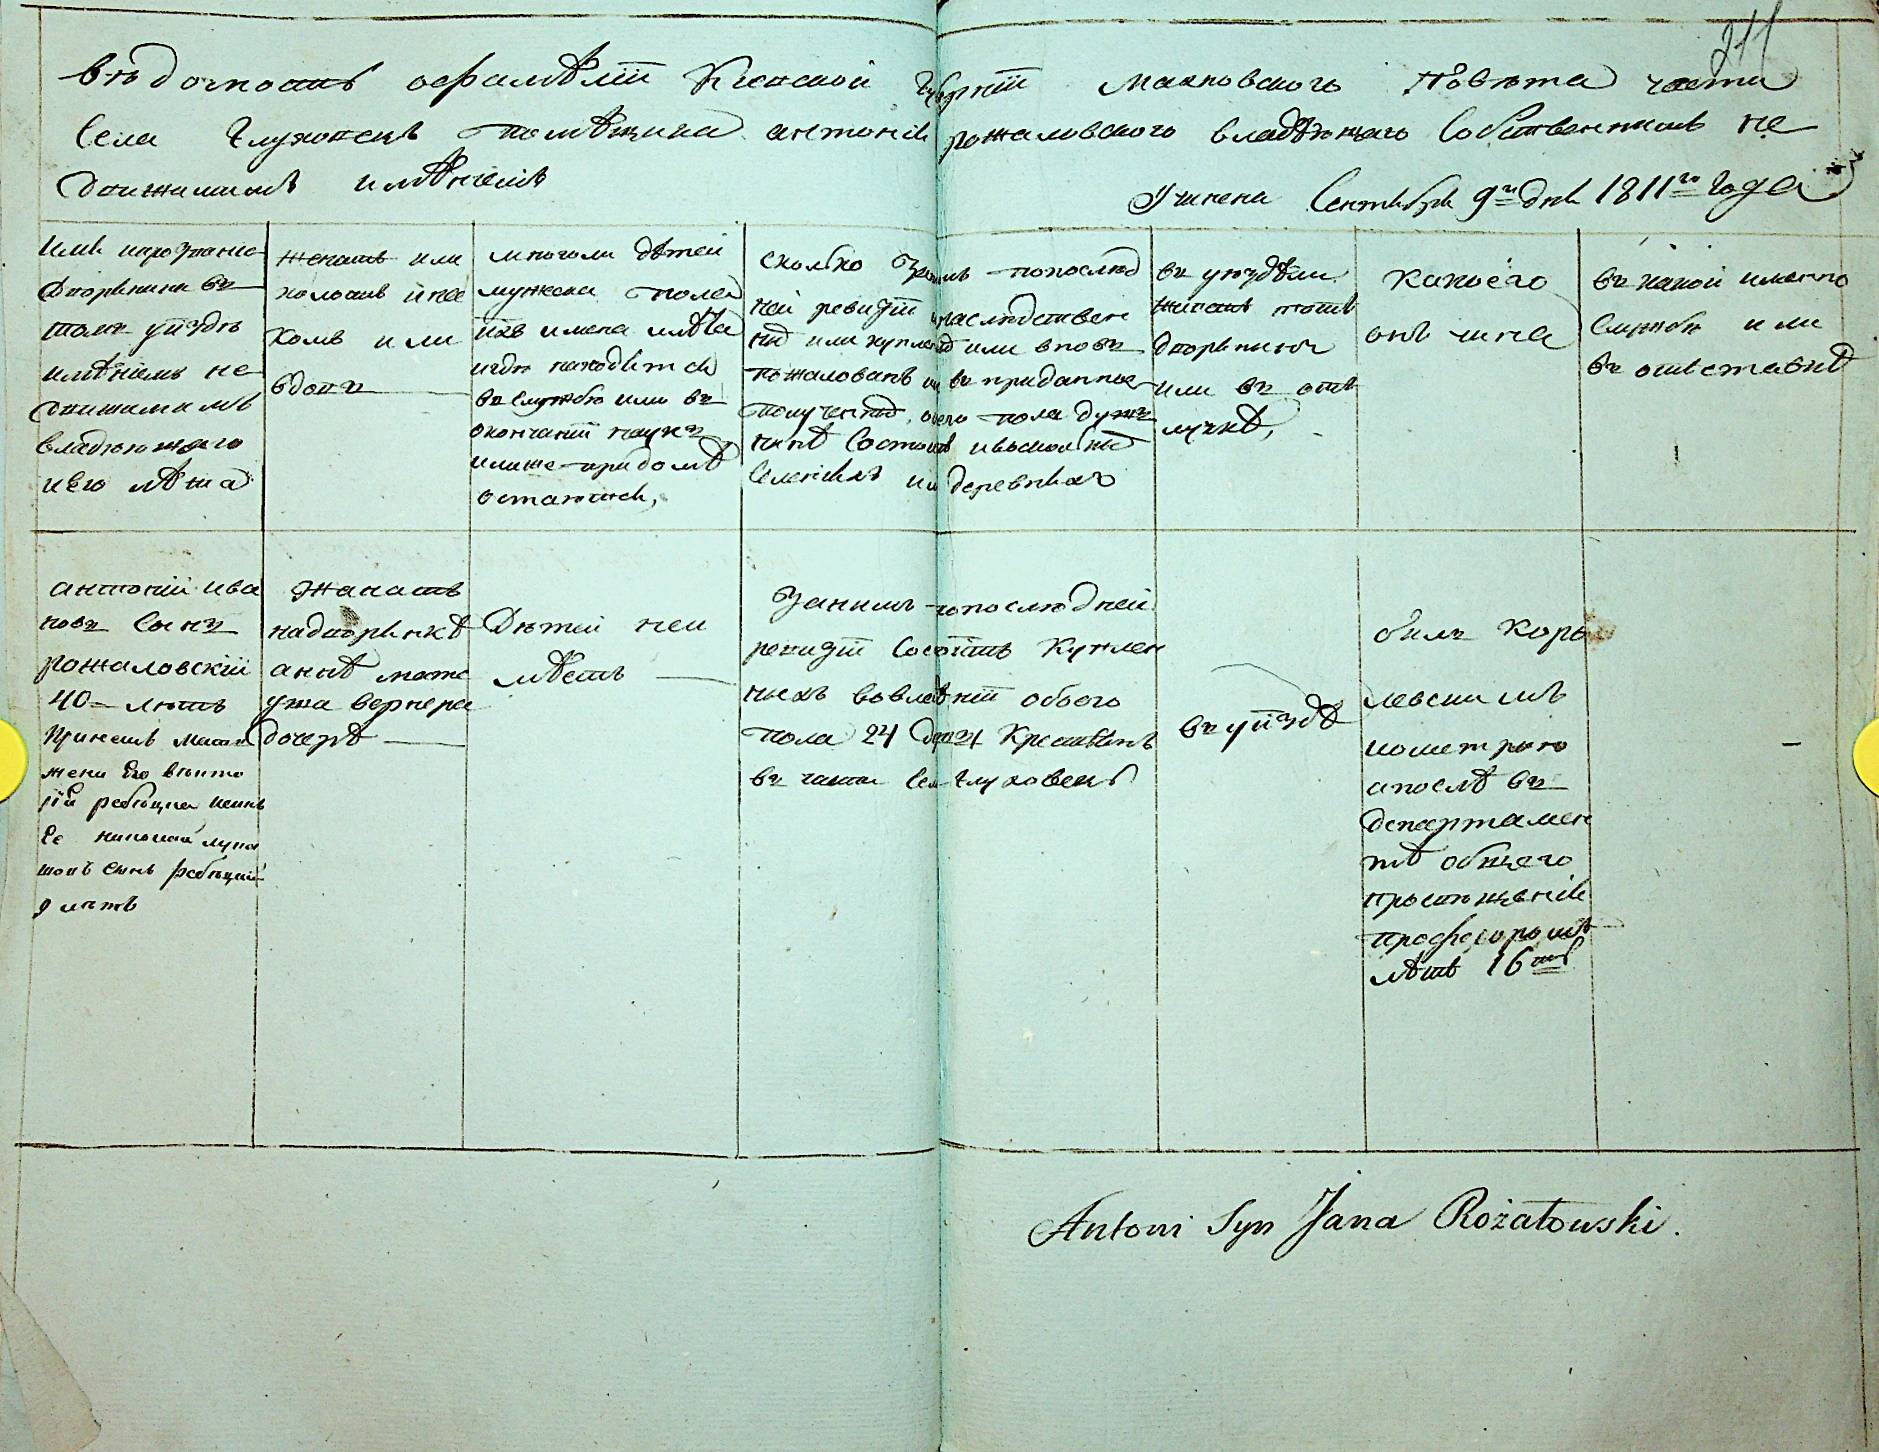 211
Вѣдомость о фамѣліи Кіевской Губерніи Махновского Повѣта части
Села Глуховецъ помѣщика Антонія рожаловского владѣющаго Собственнымъ не
движимымъ имѣніемъ
Учинена Сентября 9го дня 1811го Года
Имя и прозваніе
дворянина въ
томъ уѣздѣ
имѣніемъ не
движимымъ
владѣющаго
и его лѣта
женатъ или
холостъ и на
комъ или
вдовъ
много ли дѣтей
мужеска пола
ихъ имена и лѣта
и гдѣ находятся
въ службѣ или въ
окончаніи наукъ
или же при домѣ
остаются,
сколко за нимъ по послѣд
ней ревизіи наслѣдствен
ны или куплены или вновь
пожалованы или въ приданное
полученны, обоего пола душъ
нынѣ состоитъ и въ коихъ
селеніяхъ и деревняхъ
въ уѣздѣ ли
житъ тотъ
дворянинъ
или въ отъ
лучкѣ,
какого
онъ чина
въ какой именно
службѣ или
въ отъставкѣ
антоній ива
новъ Сынъ
рожаловскій
40 лѣтъ
жены Его викто
рій
Ее николай лука
шовъ сынъ
9 лѣтъ
жанатъ
на дворянкѣ
аннѣ мате
уша вернера
дочерѣ
Дѣтей неи
мѣетъ
За нимъ по послѣдней
ревизіи Состоитъ Куплен
ныхъ во влодѣніи обоего
пола 24 души Крестьянъ
въ части села Глуховецъ
въ уѣздѣ
былъ Коро
левскимъ
иометрою
а послѣ въ
департамен
тѣ общего
просвѣщенія
професоромъ
лѣтъ 16ть
Antoni Syn Jana Rożałowski.